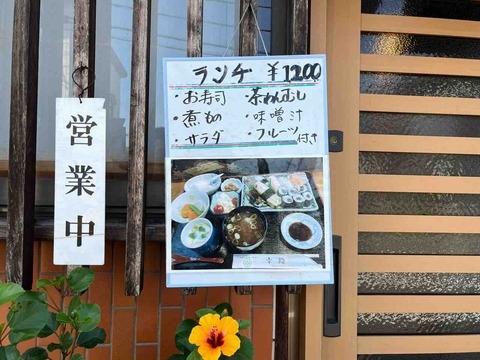 ランチ ¥1200
・お寿司 ・茶わんむし
・煮もの ・味噌汁
・サラダ ・フルーツ付き
営業中